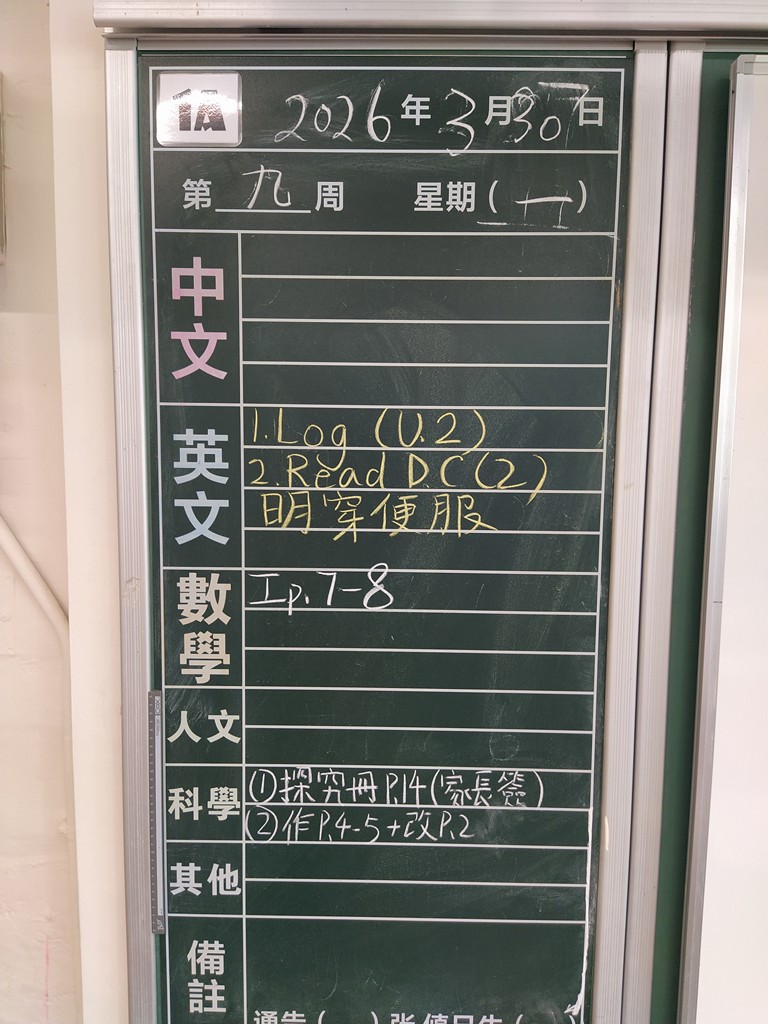 1A 2026年3月30日
第九周 星期(一)
中文
英文
1. Log (U.2)
2. Read D.C (2)
明穿便服
數學
工p.7-8
人文
科學
①探究冊P.14(家長簽)
②作P.4-5+改P.2
其他
備註
通告(